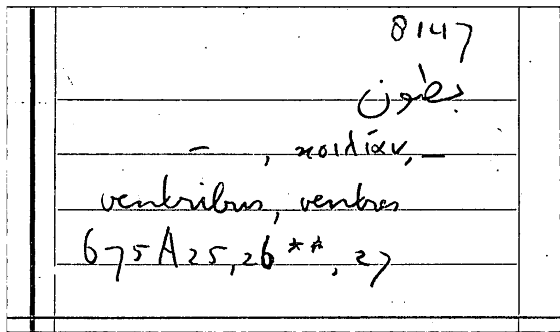 8147
بطون
– , κοιλίαν, –
ventribus, ventres
675A25,26**, 27